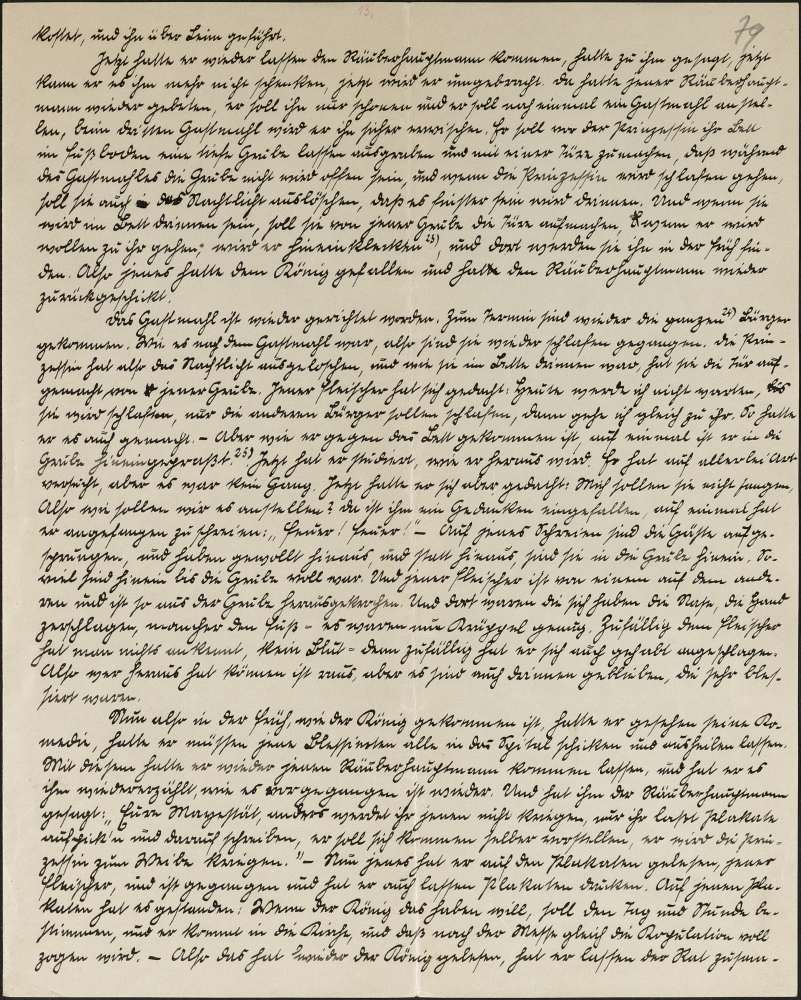 13.
79
kostet, und ihn über Leim geführt.
Jetzt hatte er wieder lassen den Räuberhauptmann kommen, hatte zu ihm gesagt, jetzt
kann er es ihm mehr nicht schenken, jetzt wird er umgebracht. Da hatte jener Räuberhaupt-
mann wieder gebeten, er soll ihn nur schonen und er soll noch einmal ein Gastmahl anstel-
len, beim dritten Gastmahl wird er ihn sicher erwischen. Er soll vor der Prinzessin ihr Bett
im Fußboden eine tiefe Grube lassen ausgraben und mit einer Türe zumachen, daß während
des Gastmahles die Grube nicht wird offen sein, und wenn die Prinzessin wird schlafen gehen,
soll sie auch das Nachtlicht auslöschen, daß es finster sein wird drinnen. Und wenn sie
wird im Bett drinnen sein, soll sie von jener Grube die Türe aufmachen, wenn er wird
wollen zu ihr gehen, wird er hineinklecken 23), und dort werden sie ihn in der Früh fin-
den. Also jenes hatte dem König gefallen und hatte den Räuberhauptmann wieder
zurückgeschickt.
Das Gastmahl ist wieder gerichtet worden. Zum Termin sind wieder die ganzen 24) Bürger
gekommen. Wie es nach dem Gastmahl war, also sind sie wieder schlafen gegangen. Die Prin-
zessin hat also das Nachtlicht ausgeloschen, und wie sie im Bette drinnen war, hat sie die Tür auf-
gemacht von jener Grube. Jener Fleischer hat sich gedacht: Heute werde ich nicht warten, bis
sie wird schlafen, nur die anderen Bürger sollen schlafen, dann gehe ich gleich zu ihr. So hatte
er es auch gemacht. – Aber wie er gegen das Bett gekommen ist, auf einmal ist er in die
Grube hineingepraßt. 25) Jetzt hat er studiert, wie er heraus wird. Er hat auf allerlei Art
versucht, aber es war kein Gang. Jetzt hatte er sich aber gedacht: Mich sollen sie nicht fangen,
Also wie sollen wir es anstellen? Da ist ihm ein Gedanken eingefallen, auf einmal hat
er angefangen zu schreien: „Feuer! Feuer!" – Auf jenes Schreien sind die Gäste aufge-
sprungen, und haben gewollt hinaus, und statt hinaus, sind sie in die Grube hinein. So-
viel sind hinein bis die Grube voll war. Und jener Fleischer ist von einem auf dem ande-
ren und ist so aus der Grube herausgekrochen. Und dort waren die sich haben die Nase, die Hand
zerschlagen, mancher den Fuß – es waren nun Krüppel genug. Zufällig dem Fleischer
hat man nichts ankannt, kein Blut – denn zufällig hat er sich auch gehabt angeschlagen.
Also wer heraus hat können ist raus, aber es sind auch drinnen geblieben, die sehr bles-
siert waren.
Nun also in der Früh, wie der König gekommen ist, hatte er gesehen seine Ko-
medie, hatte er müssen jene Blessierten alle in das Spital schicken und ausheilen lassen.
Mit diesem hatte er wieder jenen Räuberhauptmann kommen lassen, und hat er es
ihm wiedererzählt, wie es vorgegangen ist wieder. Und hat ihm der Räuberhauptmann
gesagt: „Eure Magestät, anders werdet ihr jenen nicht kriegen, nur ihr laßt Plakate
aufpick'n und darauf schreiben, er soll sich kommen selber vorstellen, er wird die Prin-
zessin zum Weibe kriegen." – Nun jenes hat er auf den Plakaten gelesen, jener
Fleischer, und ist gegangen und hat er auch lassen Plakaten drucken. Auf jenen Pla-
katen hat es gestanden: Wenn der König das haben will, soll den Tag und Stunde be-
stimmen, und er kommt in die Kirche, und daß nach der Messe gleich die Kopulation voll
zogen wird. – Also das hat wieder der König gelesen, hat er lassen der Rat zusam-